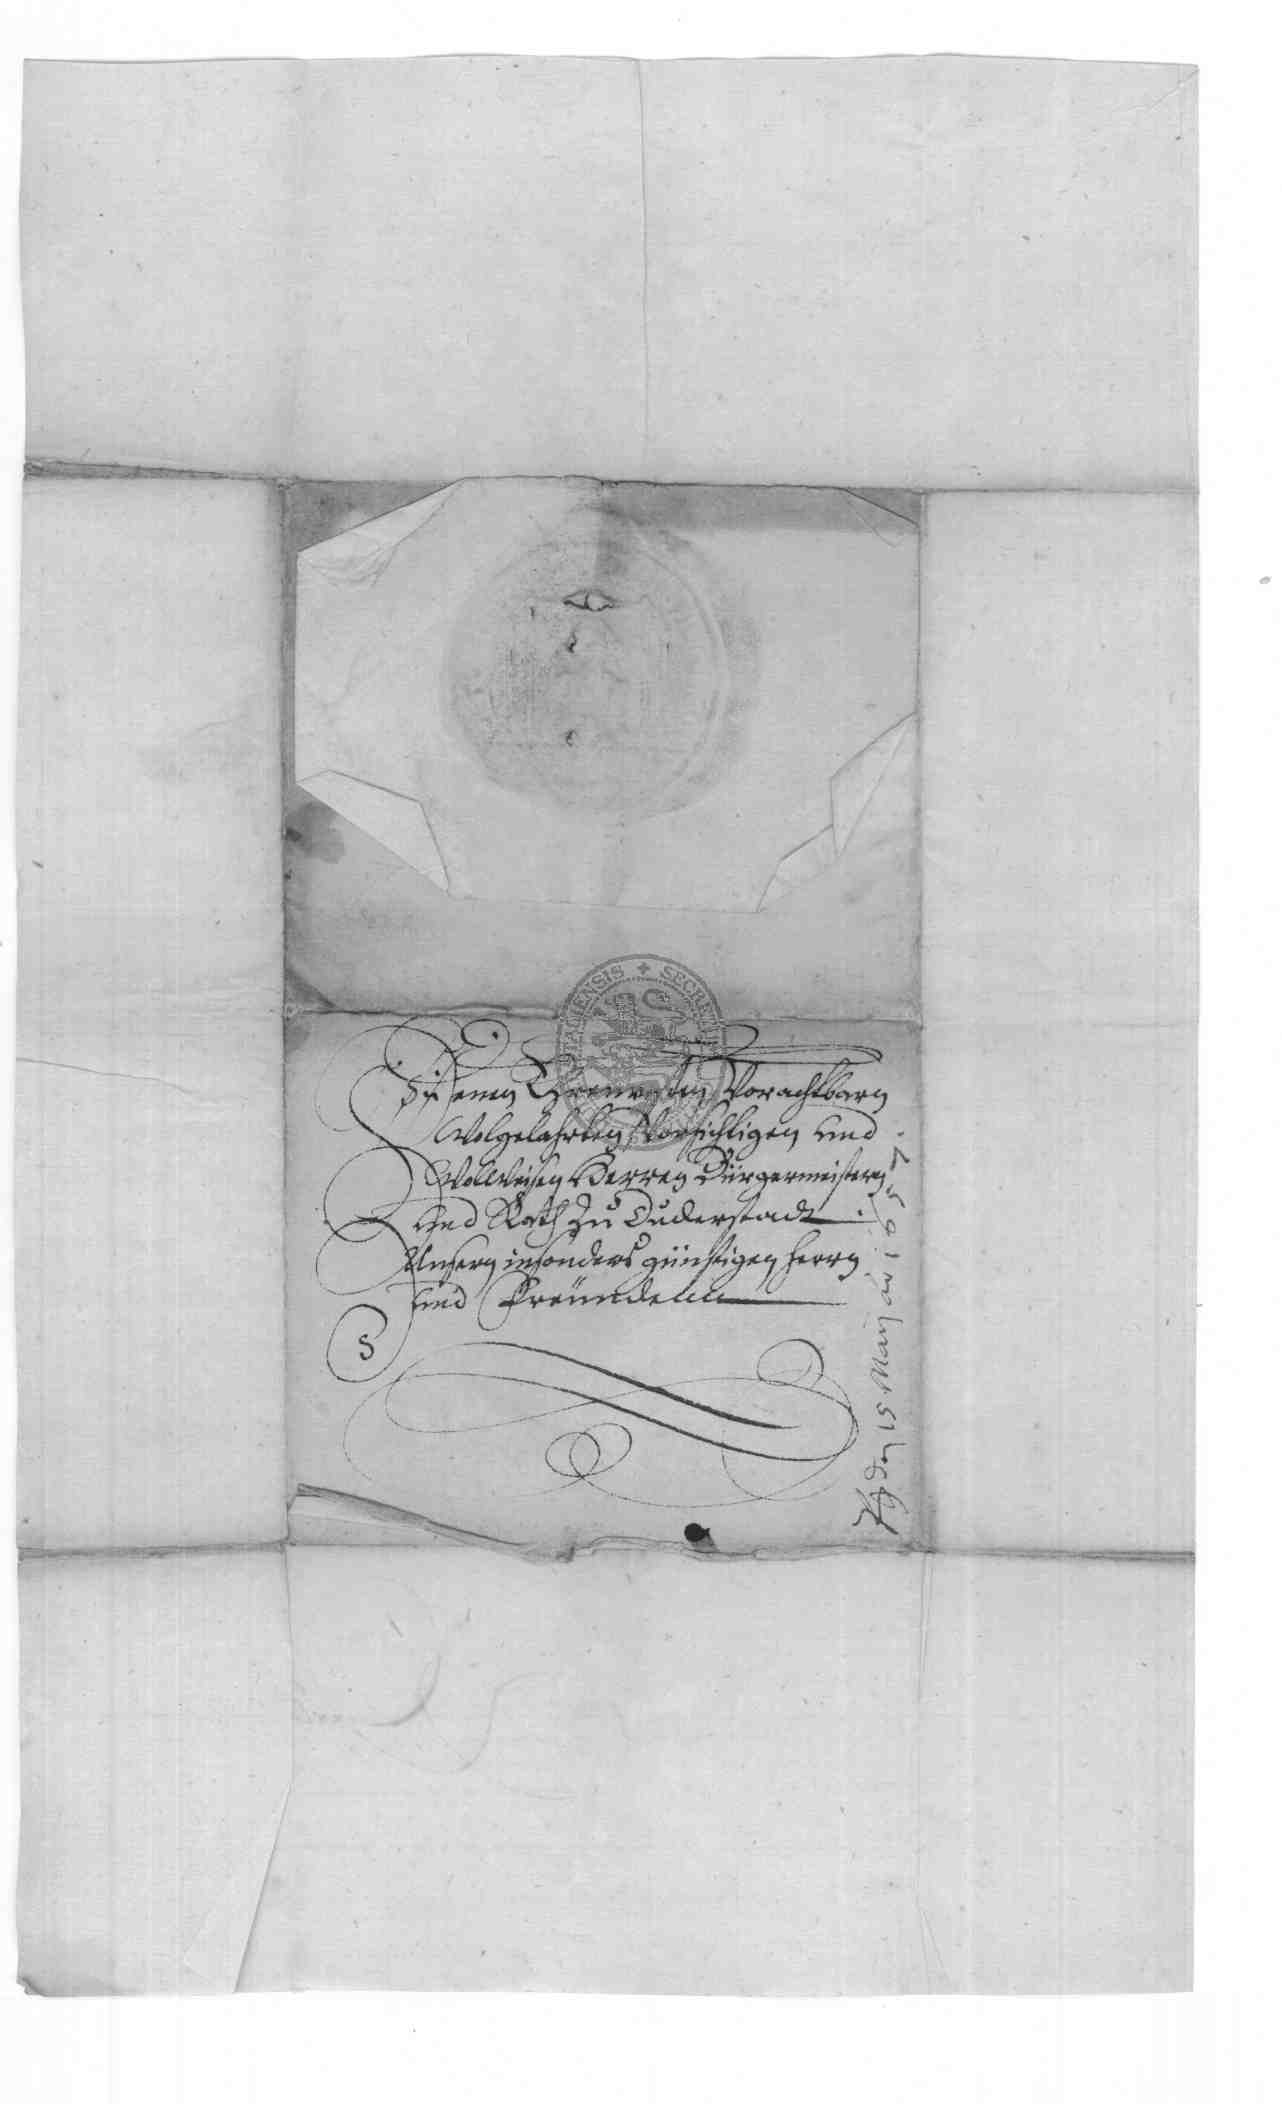 Denen Ehrenvesten, Vorachtbarn
Wolgelahrten, Vorsichtigen und
Wollweisen Herren Bürgermeistern
und Rath zu Duderstadt.
Unsern insonders günstigen Herrn
und Freündenn
den 15 Maij ao 1657.
SECRET